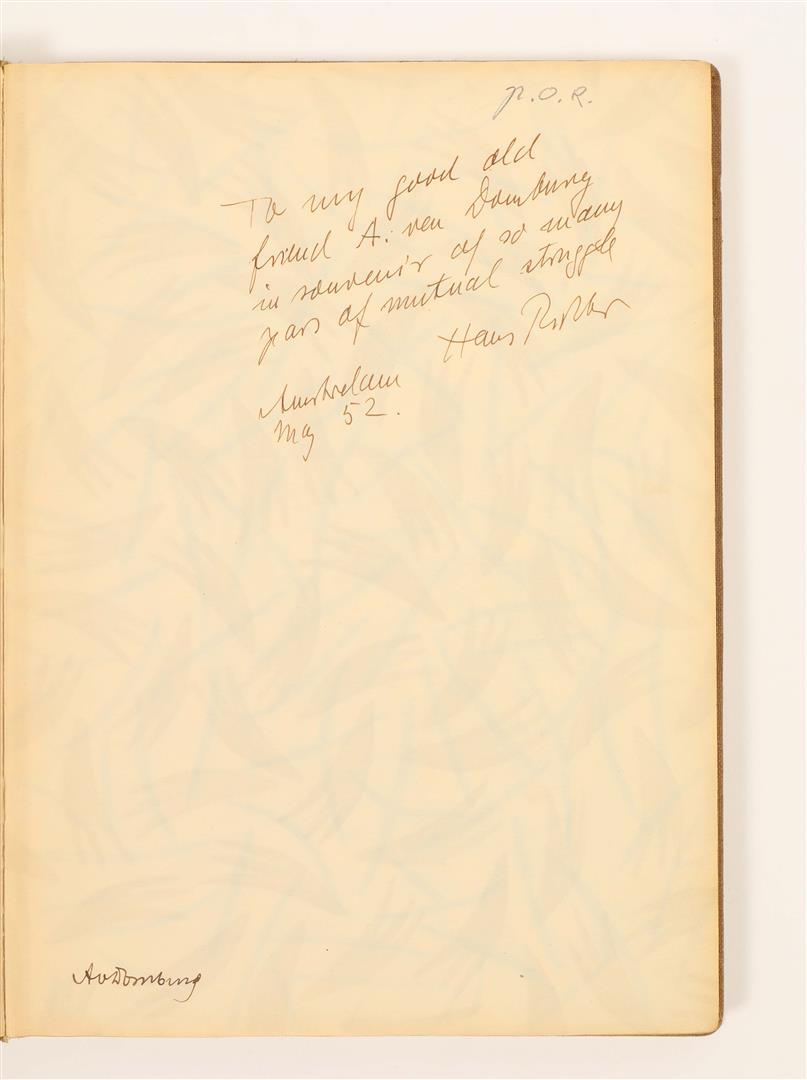 p.o.R.
To my good old
friend A. van Domburg
in souvenir of so many
years of mutual struggle
Hans Richter
Amsterdam
May 52.
AvDomburg